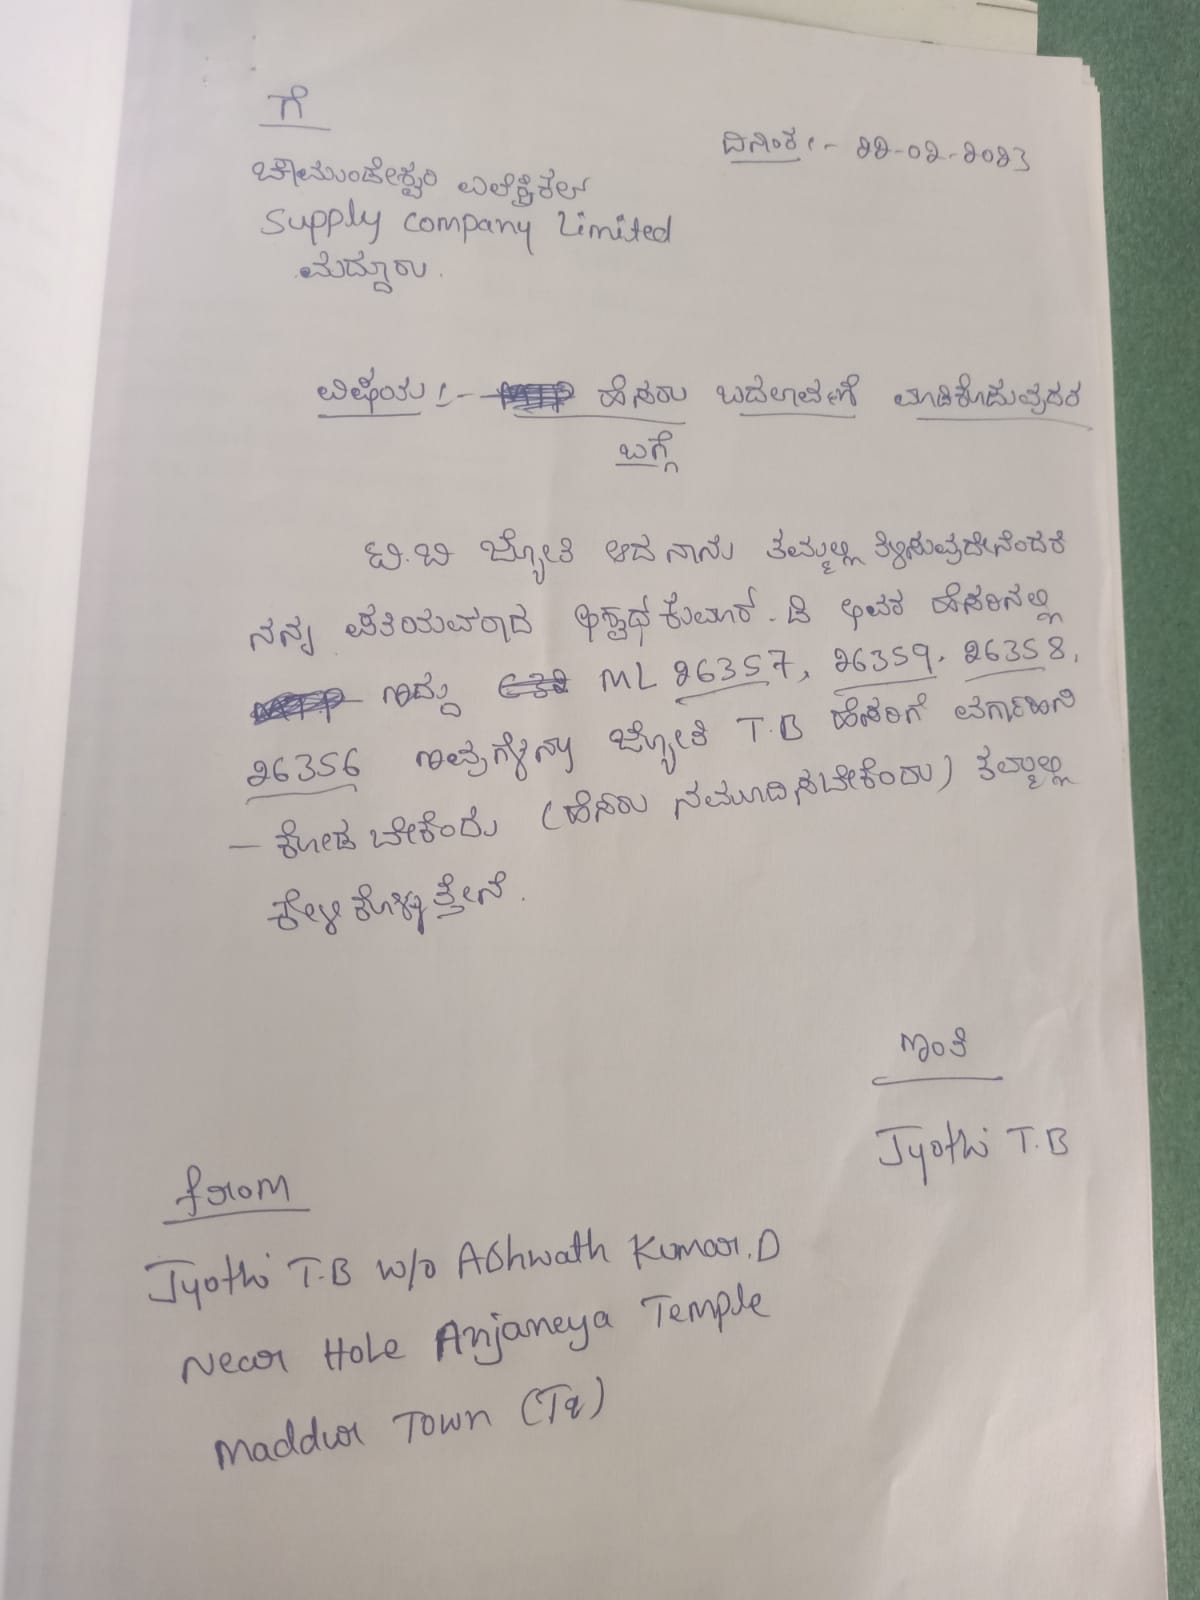 ಗೆ
ದಿನಾಂಕ :- 22-02-2023
ಚಾಮುಂಡೇಶ್ವರಿ ಎಲೆಕ್ಟ್ರಿಕಲ್
Supply Company Limited
ಮದ್ದೂರು.
ವಿಷಯ :- ಹೆಸರು ಬದಲಾವಣೆ ಮಾಡಿಕೊಡುವುದರ
ಬಗ್ಗೆ
ಟಿ.ಬಿ ಜ್ಯೋತಿ ಆದ ನಾನು ತಮ್ಮಲ್ಲಿ ತಿಳಿಸುವುದೇನೆಂದರೆ
ನನ್ನ ಪತಿಯವರಾದ ಅಶ್ವಥ್ ಕುಮಾರ್. ಡಿ ಅವರ ಹೆಸರಿನಲ್ಲಿ
ಇದ್ದು ML 26357, 26359. 26358,
26356 ಇವುಗಳನ್ನು ಜ್ಯೋತಿ T.B ಹೆಸರಿಗೆ ವರ್ಗಾಹಿಸಿ
- ಕೊಡ ಬೇಕೆಂದು (ಹೆಸರು ನಮೂದಿಸಬೇಕೆಂದು) ತಮ್ಮಲ್ಲಿ
ಕೇಳಿ ಕೊಳ್ಳುತ್ತೇನೆ.
ಇಂತಿ
Jyothi T.B
from
Jyothi T.B w/o Ashwath Kumar.D
Near Hole Anjaneya Temple
Maddur Town (Tq)